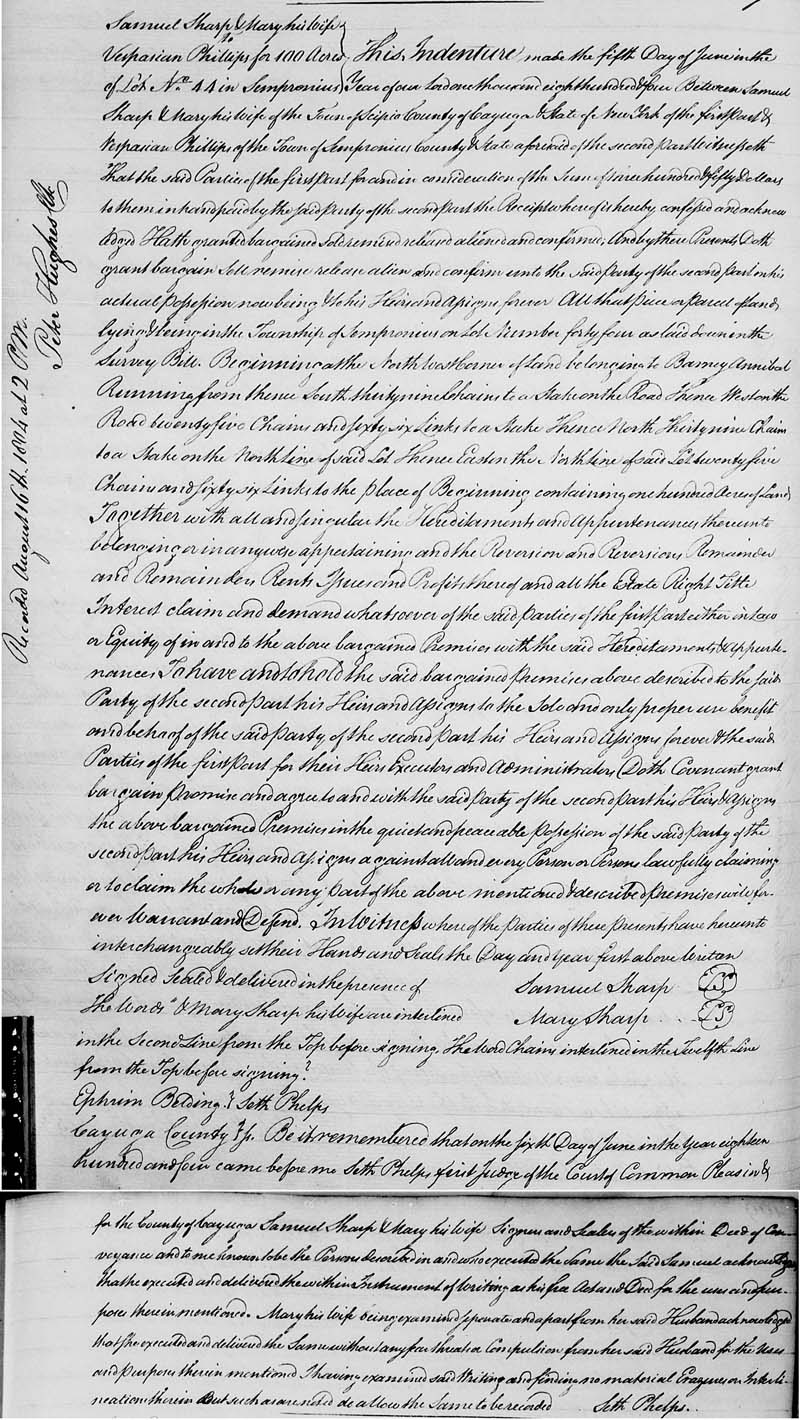 Samuel Sharp & Mary his Wife
to
Vespasian Phillips for 100 Acres
of Lot No. 44 in Sempronius
This Indenture made the fifth Day of June in the
Year of our Lord one thousand eight hundred & four Between Samuel
Sharp & Mary his Wife of the Town of Scipio County of Cayuga & State of New York of the first part &
Vespasian Phillips of the Town of Sempronius County & State aforesaid of the second part Witnesseth
That the said Parties of the first part for and in consideration of the Sum of hundred & fifty Dollars
to them in hand paid by the said party of the second part the Receipt whereof is hereby confessed and acknow
ledged Hath granted bargained sold remised released aliened and confirmed, And by these Presents Doth
grant bargain Sell remise release alien and confirm unto the said party of the second part in his
actual Possession now being & to his Heirs and Assigns forever All that piece or parcel of Land
lying & being in the Township of Sempronius on Lot Number forty four as laid down in the
Survey Bill. Beginning at the North West Corner of Land belonging to Barney Annibal
Running from thence South thirty nine Chains to a Stake on the Road Thence West on the
Road twenty five Chains and sixty six Links to a Stake Thence North Thirty nine Chains
to a Stake on the North Line of said Lot Thence East on the North Line of said Lot twenty five
Chains and sixty six Links to the place of Beginning containing one hundred Acres of Land
Together with all and singular the Hereditaments and Appurtenances thereunto
belonging or in any wise appertaining and the Reversion and Reversions Remainder
and Remainders Rents Issues and Profits thereof and all the Estate Right Title
Interest claim and demand whatsoever of the said parties of the first part either in Law
or Equity of in and to the above bargained Premises with the said Hereditaments & Appurte-
nances To have and to hold the said bargained premises above described to the said
Party of the second part his Heirs and Assigns to the Sole and only proper use benefit
and behoof of the said party of the second part his Heirs and Assigns forever & the said
Parties of the first part for their Heirs Executors and Administrators Doth Covenant grant
bargain promise and agree to and with the said party of the second part his Heirs & Assigns
the above bargained Premises in the quiet and peaceable possession of the said party of the
second part his Heirs and Assigns against all and every Person or Persons lawfully claiming
or to claim the whole or any part of the above mentioned & described premises will for-
ever Warrant and Defend. In Witness whereof the parties of these presents have hereunto
interchangeably set their Hands and Seals the Day and year first above Written
Signed Sealed & delivered in the presence of Samuel Sharp LS
The Words "& Mary Sharp his Wife are interlined Mary Sharp LS
in the Second Line from the Top before signing. The Word Chains interlined in the Twelfth Line
from the Top before signing
Ephrim Belding Seth Phelps
Cayuga County Ss. Be it remembered that on the sixth Day of June in the Year eighteen
hundred and four came before me Seth Phelps first Judge of the Court of Common Pleas in &
for the County of Cayuga Samuel Sharp & Mary his Wife Signers and Sealers of the within Deed of Con-
veyance and to me known to be the Persons described in and who executed the Same the Said Samuel acknowledges
that he executed and delivered the within Instrument of Writing as his free Act and Deed for the uses and pur-
poses therein mentioned. Mary his Wife being examined seperate and apart from her said Husband acknowledged
that she executed and delivered the Same without any fear threat or Compulsion from her said Husband for the Uses
and purposes therein mentioned I having examined said Writing and finding no material Erazures or Interli-
neation therein But such as are noted do allow the Same to be recorded Seth Phelps.
Recorded August 16th. 1804 at 2 P.M.
Peter Hughes Clk